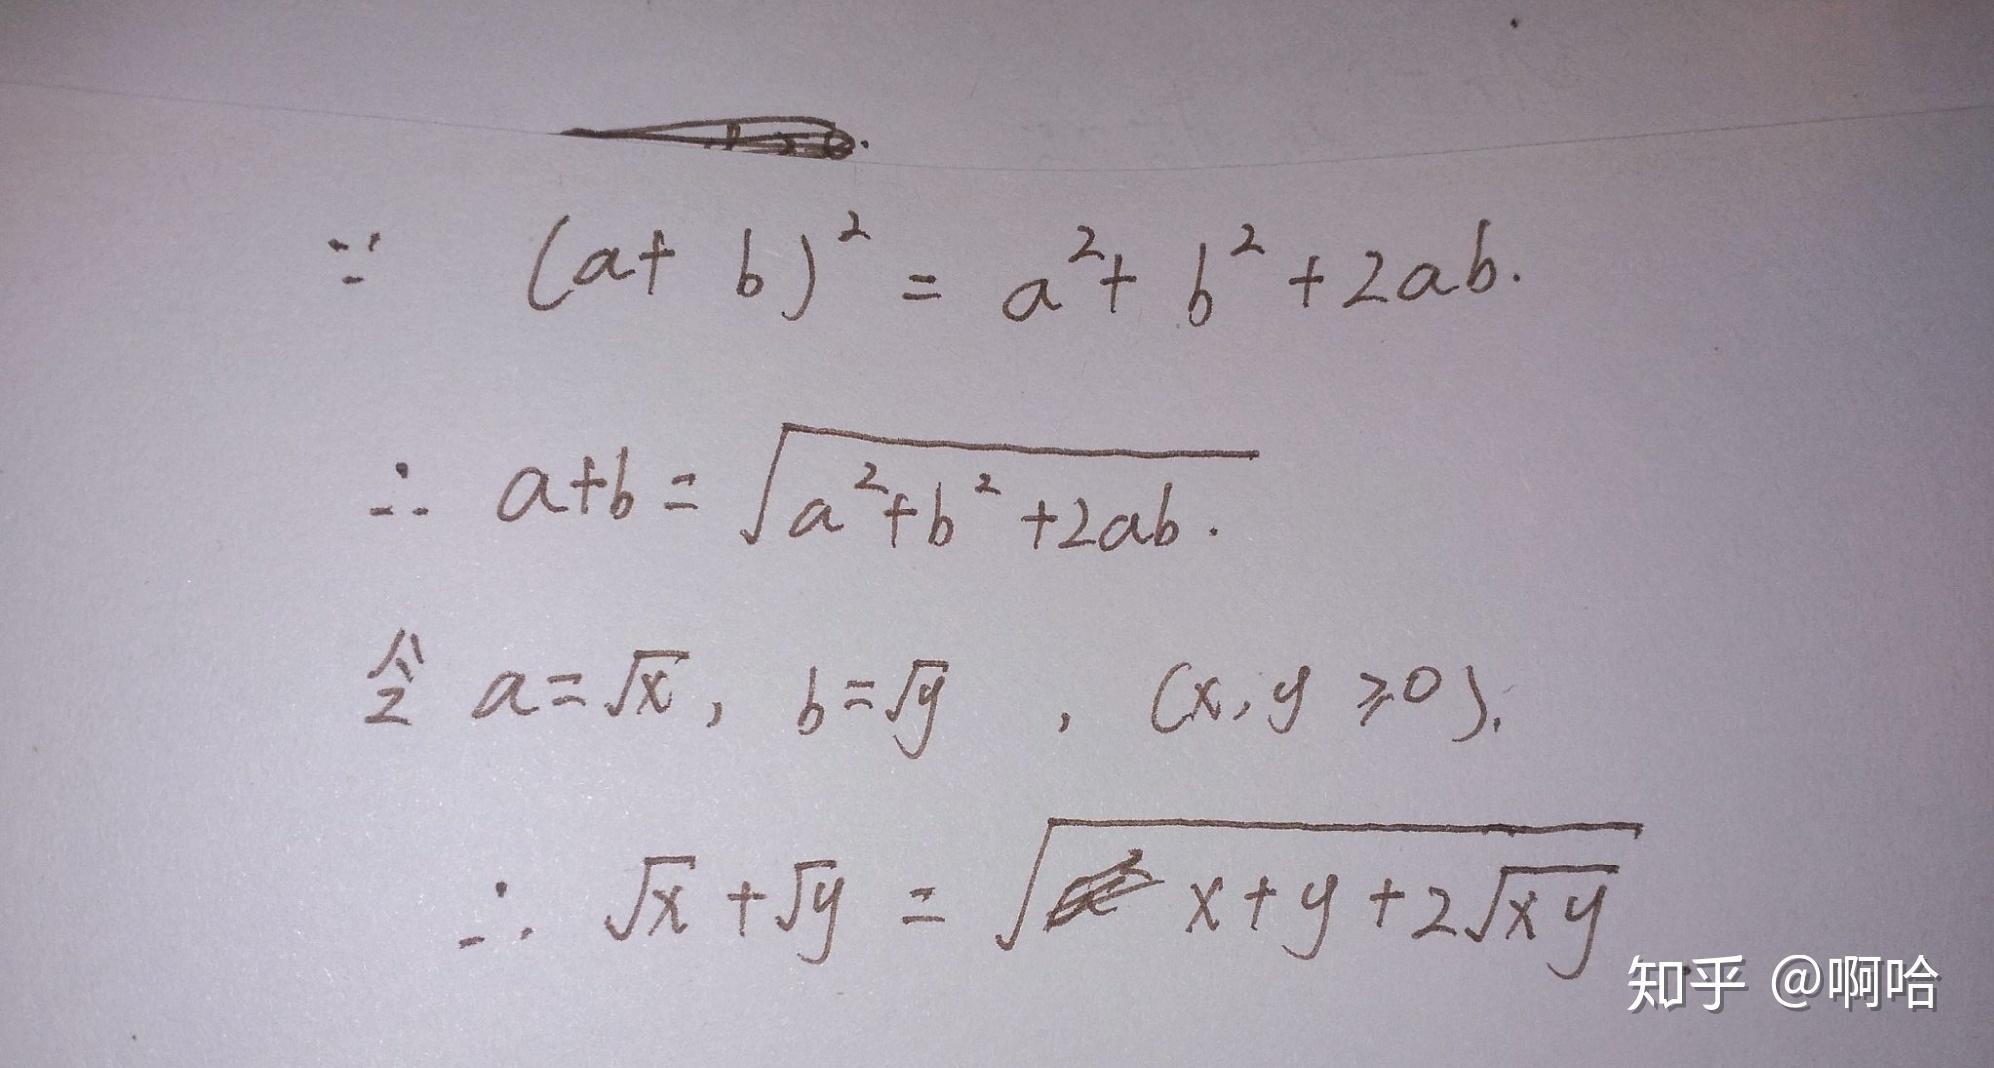 ∵ (a+b)² = a²+b²+2ab.
∴ a+b = √(a²+b²+2ab).
令 a=√x, b=√y , (x,y ≥0).
∴ √x+√y = √(x+y+2√(xy))
知乎 @啊哈